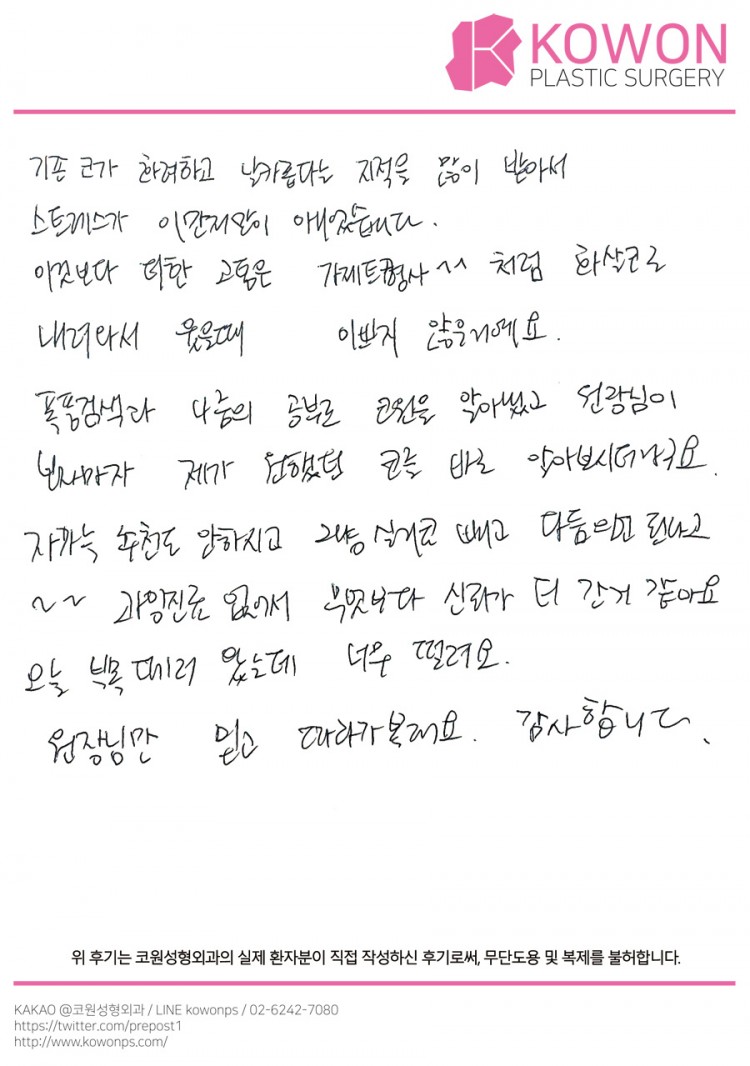 KOWON
PLASTIC SURGERY
기존 코가 화려하고 날카롭다는 지적을 많이 받아서
스트레스가 이만저만이 아니었습니다.
이것보다 더한 고통은 가제트형사^^ 처럼 화살코로
내려와서 웃을때 이쁘지 않은거에요.
폭풍검색과 나름의 공부로 코원을 알아냈고 원장님이
보자마자 제가 원했던 코를 바로 알아보시더라구요.
자가늑 추천도 안하시고 그냥 실리콘 빼고 다듬으면 된다고
~~ 과잉진료 없어서 무엇보다 신뢰가 더 간거 같아요
오늘 부목 떼러 왔는데 너무 떨려요.
원장님만 믿고 따라가볼래요. 감사합니다.
위 후기는 코원성형외과의 실제 환자분이 직접 작성하신 후기로써, 무단도용 및 복제를 불허합니다.
KAKAO @코원성형외과 / LINE kowonps / 02-6242-7080
https://twitter.com/prepost1
http://www.kowonps.com/